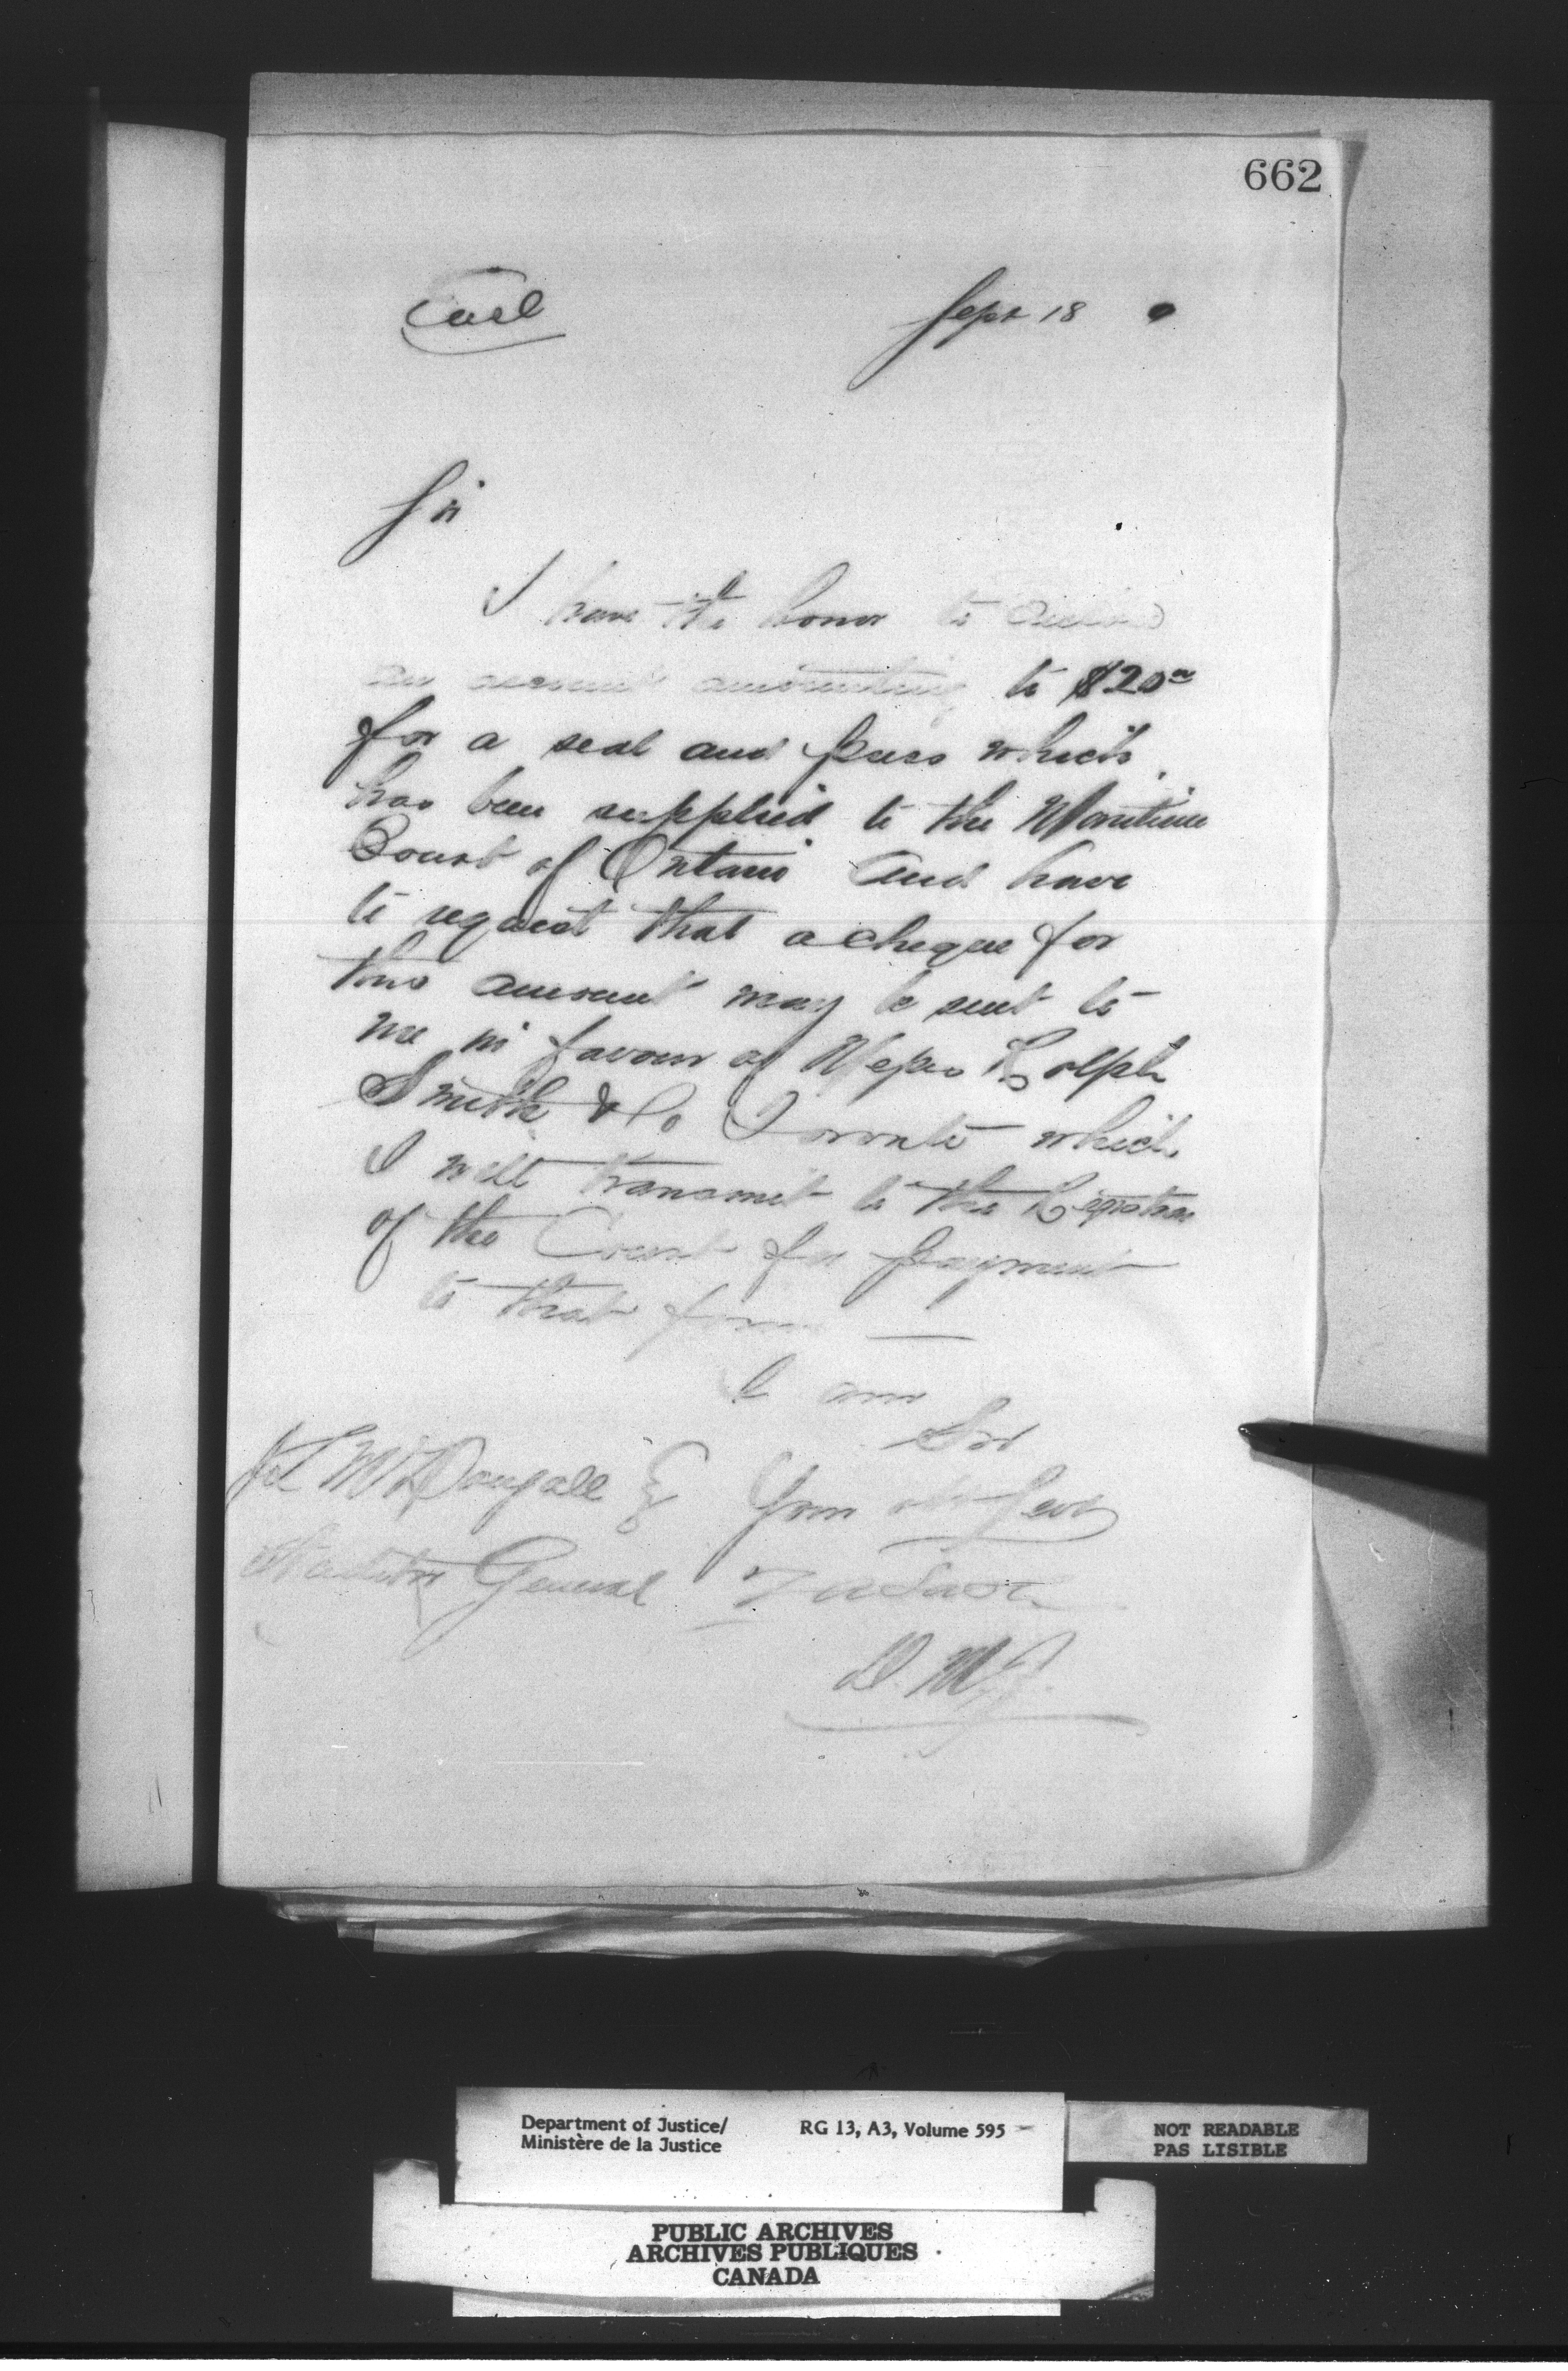 662
Encl Sept 18
Sir
I have the honor to enclose
an account amounting to $20⁰⁰
for a seal and press which
has been supplied to the Maritime
Court of Ontario and have
to request that a cheque for
this amount may be sent to
me in favour of Messrs Rolph
Smith & Co Toronto which
I will transmit to the Registrar
of the Court for payment
to that firm —
I am
Sir
J L McDougall E Your obt Servt
Auditor General
D. M. J.
Department of Justice/ RG 13, A3, Volume 595
Ministère de la Justice
NOT READABLE
PAS LISIBLE
PUBLIC ARCHIVES
ARCHIVES PUBLIQUES
CANADA